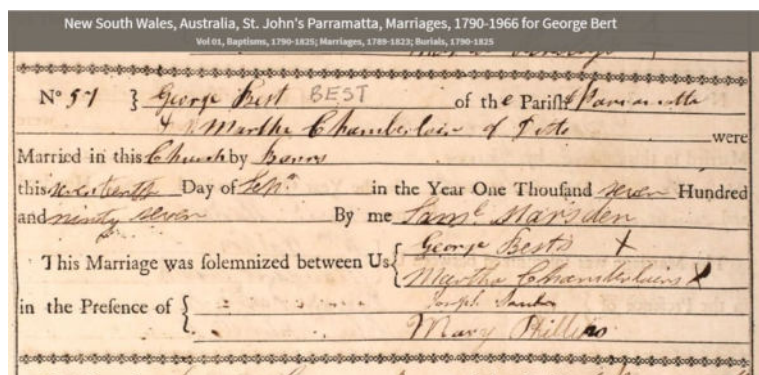 New South Wales, Australia, St. John's Parramatta, Marriages, 1790-1966 for George Bert
Vol 01, Baptisms, 1790-1825; Marriages, 1789-1823; Burials, 1790-1825
No 57 } George Best BEST of the Parish Parramatta
& Martha Chamberlain of Ditto were
Married in this Church by Banns
this seventeenth Day of in the Year One Thousand seven Hundred
and ninety seven By me Saml Marsden
This Marriage was solemnized between Us { George Bests X
Martha Chamberlains X
in the Presence of { Joseph
Mary Phillips